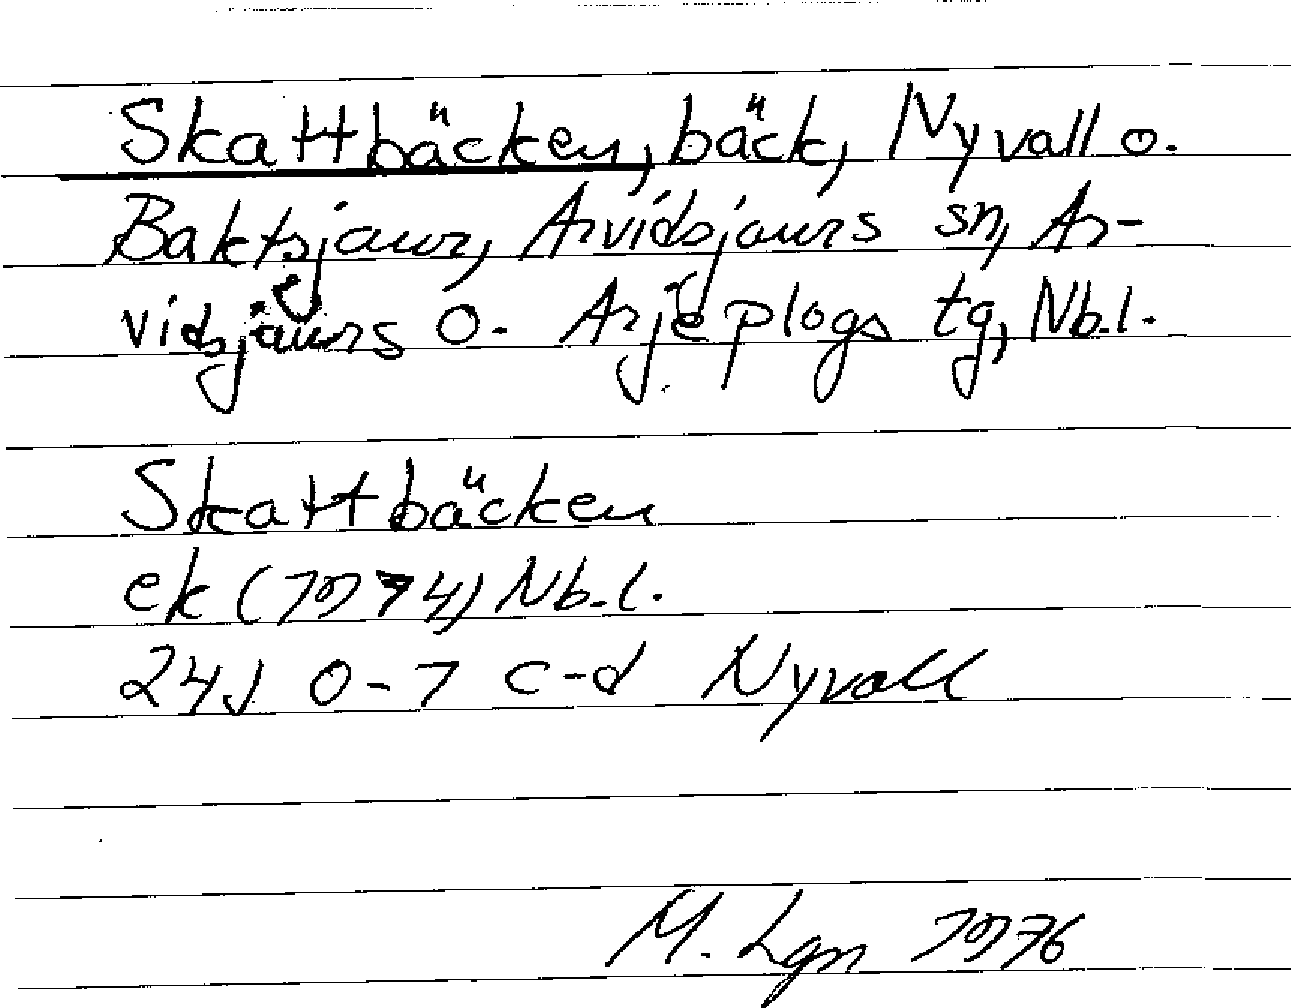 Skattbäcken, bäck, Nyvall o.
Baktsjaur, Arvidsjaurs sn, Ar-
vidsjaurs o. Arjeplogs tg, Nb.l.
Skattbäcken
ek (1974) Nb.l.
24J 0-1 c-d Nyvall
M. Lgn 1976